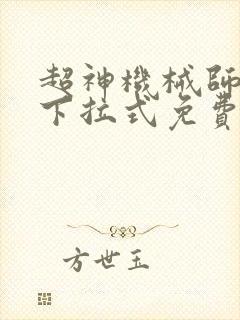 超神機械師
下拉式免費
方世玉